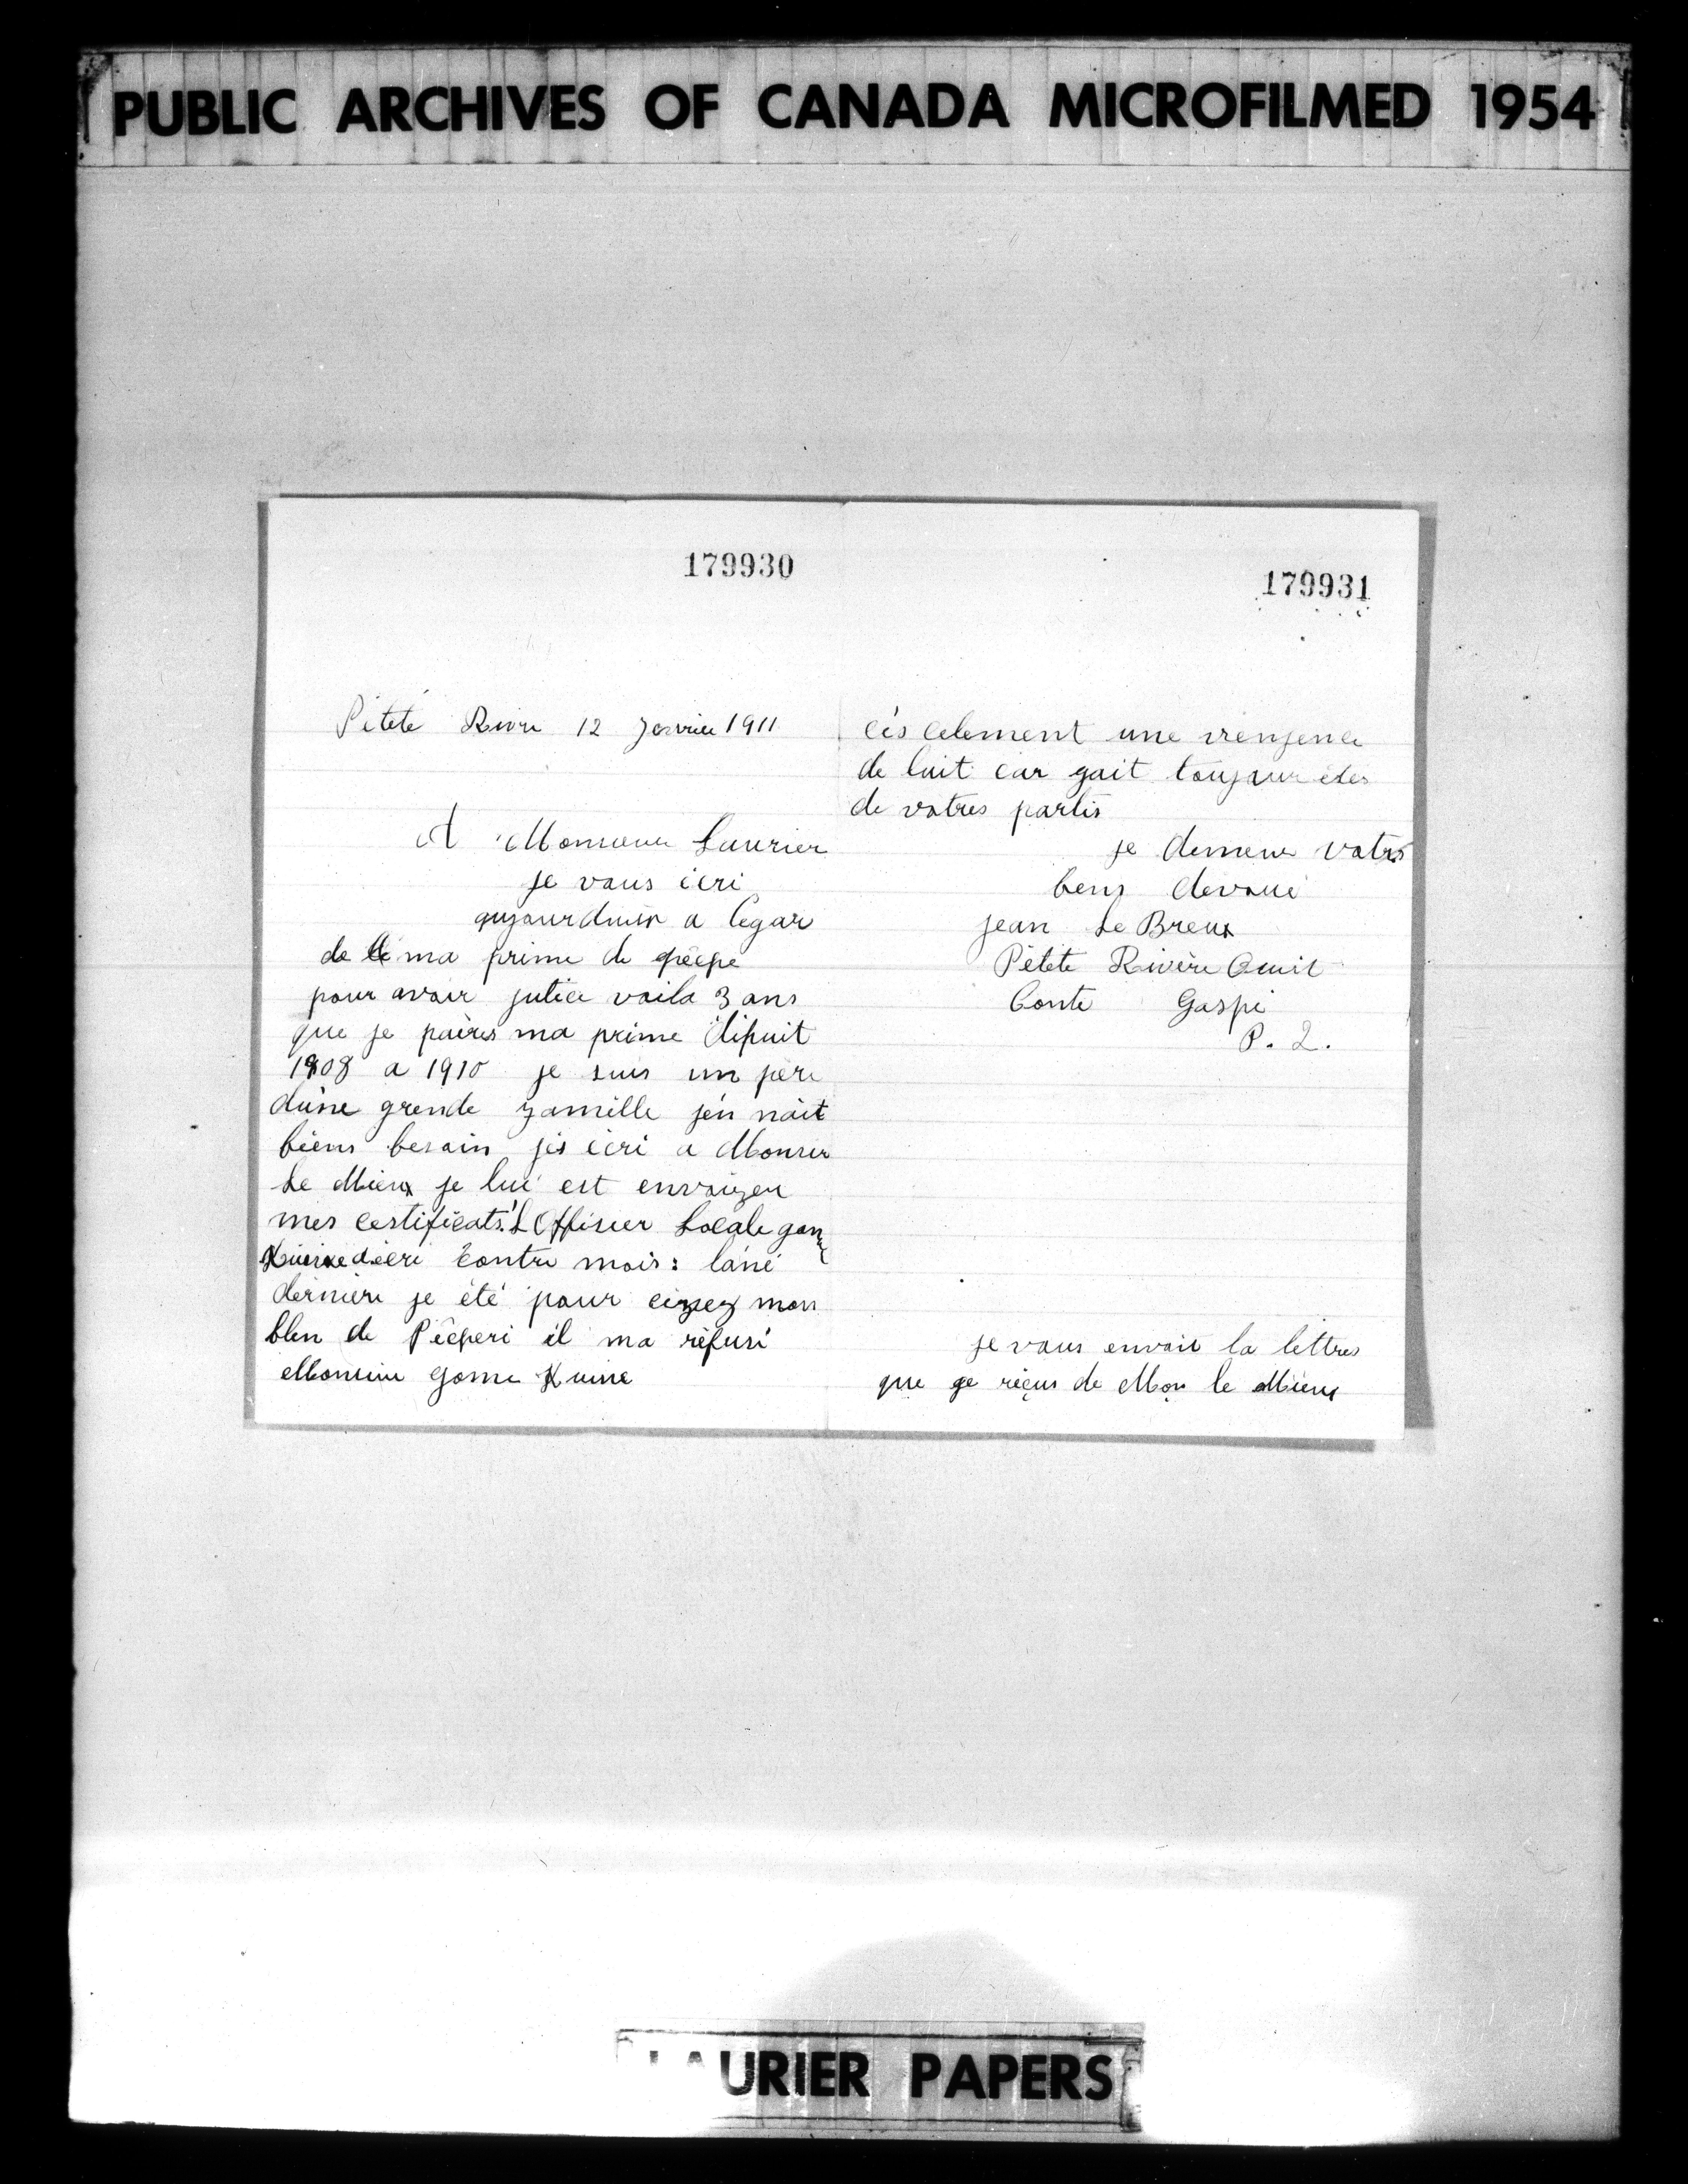 PUBLIC ARCHIVES OF CANADA MICROFILMED 1954
179930
Péteté Rivre 12 Janvier 1911
A Monsieur Laurier
je vous écri
aujourduir a legar
de le ma prime de pêepe
pour avoir jutice voila 3 ans
que je paires ma prime dipuit
1908 a 1910 je suis un père
dúne grende famille jén náit
biens besoin jés écri a Monser
Le Mieux je lui est envoizer
mes certificats. L Offisier Locale gon
Kuine décri contre mois: láné
dernière je été pour eizez mon
blen de Pêcheri il ma réfusé
Monsieur Gome Kuine
179931
cés celement une venjence
de luit car gait toujour etes
de votres partis
je demeur votres
bens devoué
jean Le Breux
Pétete Rivère Ouit
Conte Gaspé
P. Q.
je vous envoit la lettres
que ge réçus de Mon le Mieux
LAURIER PAPERS